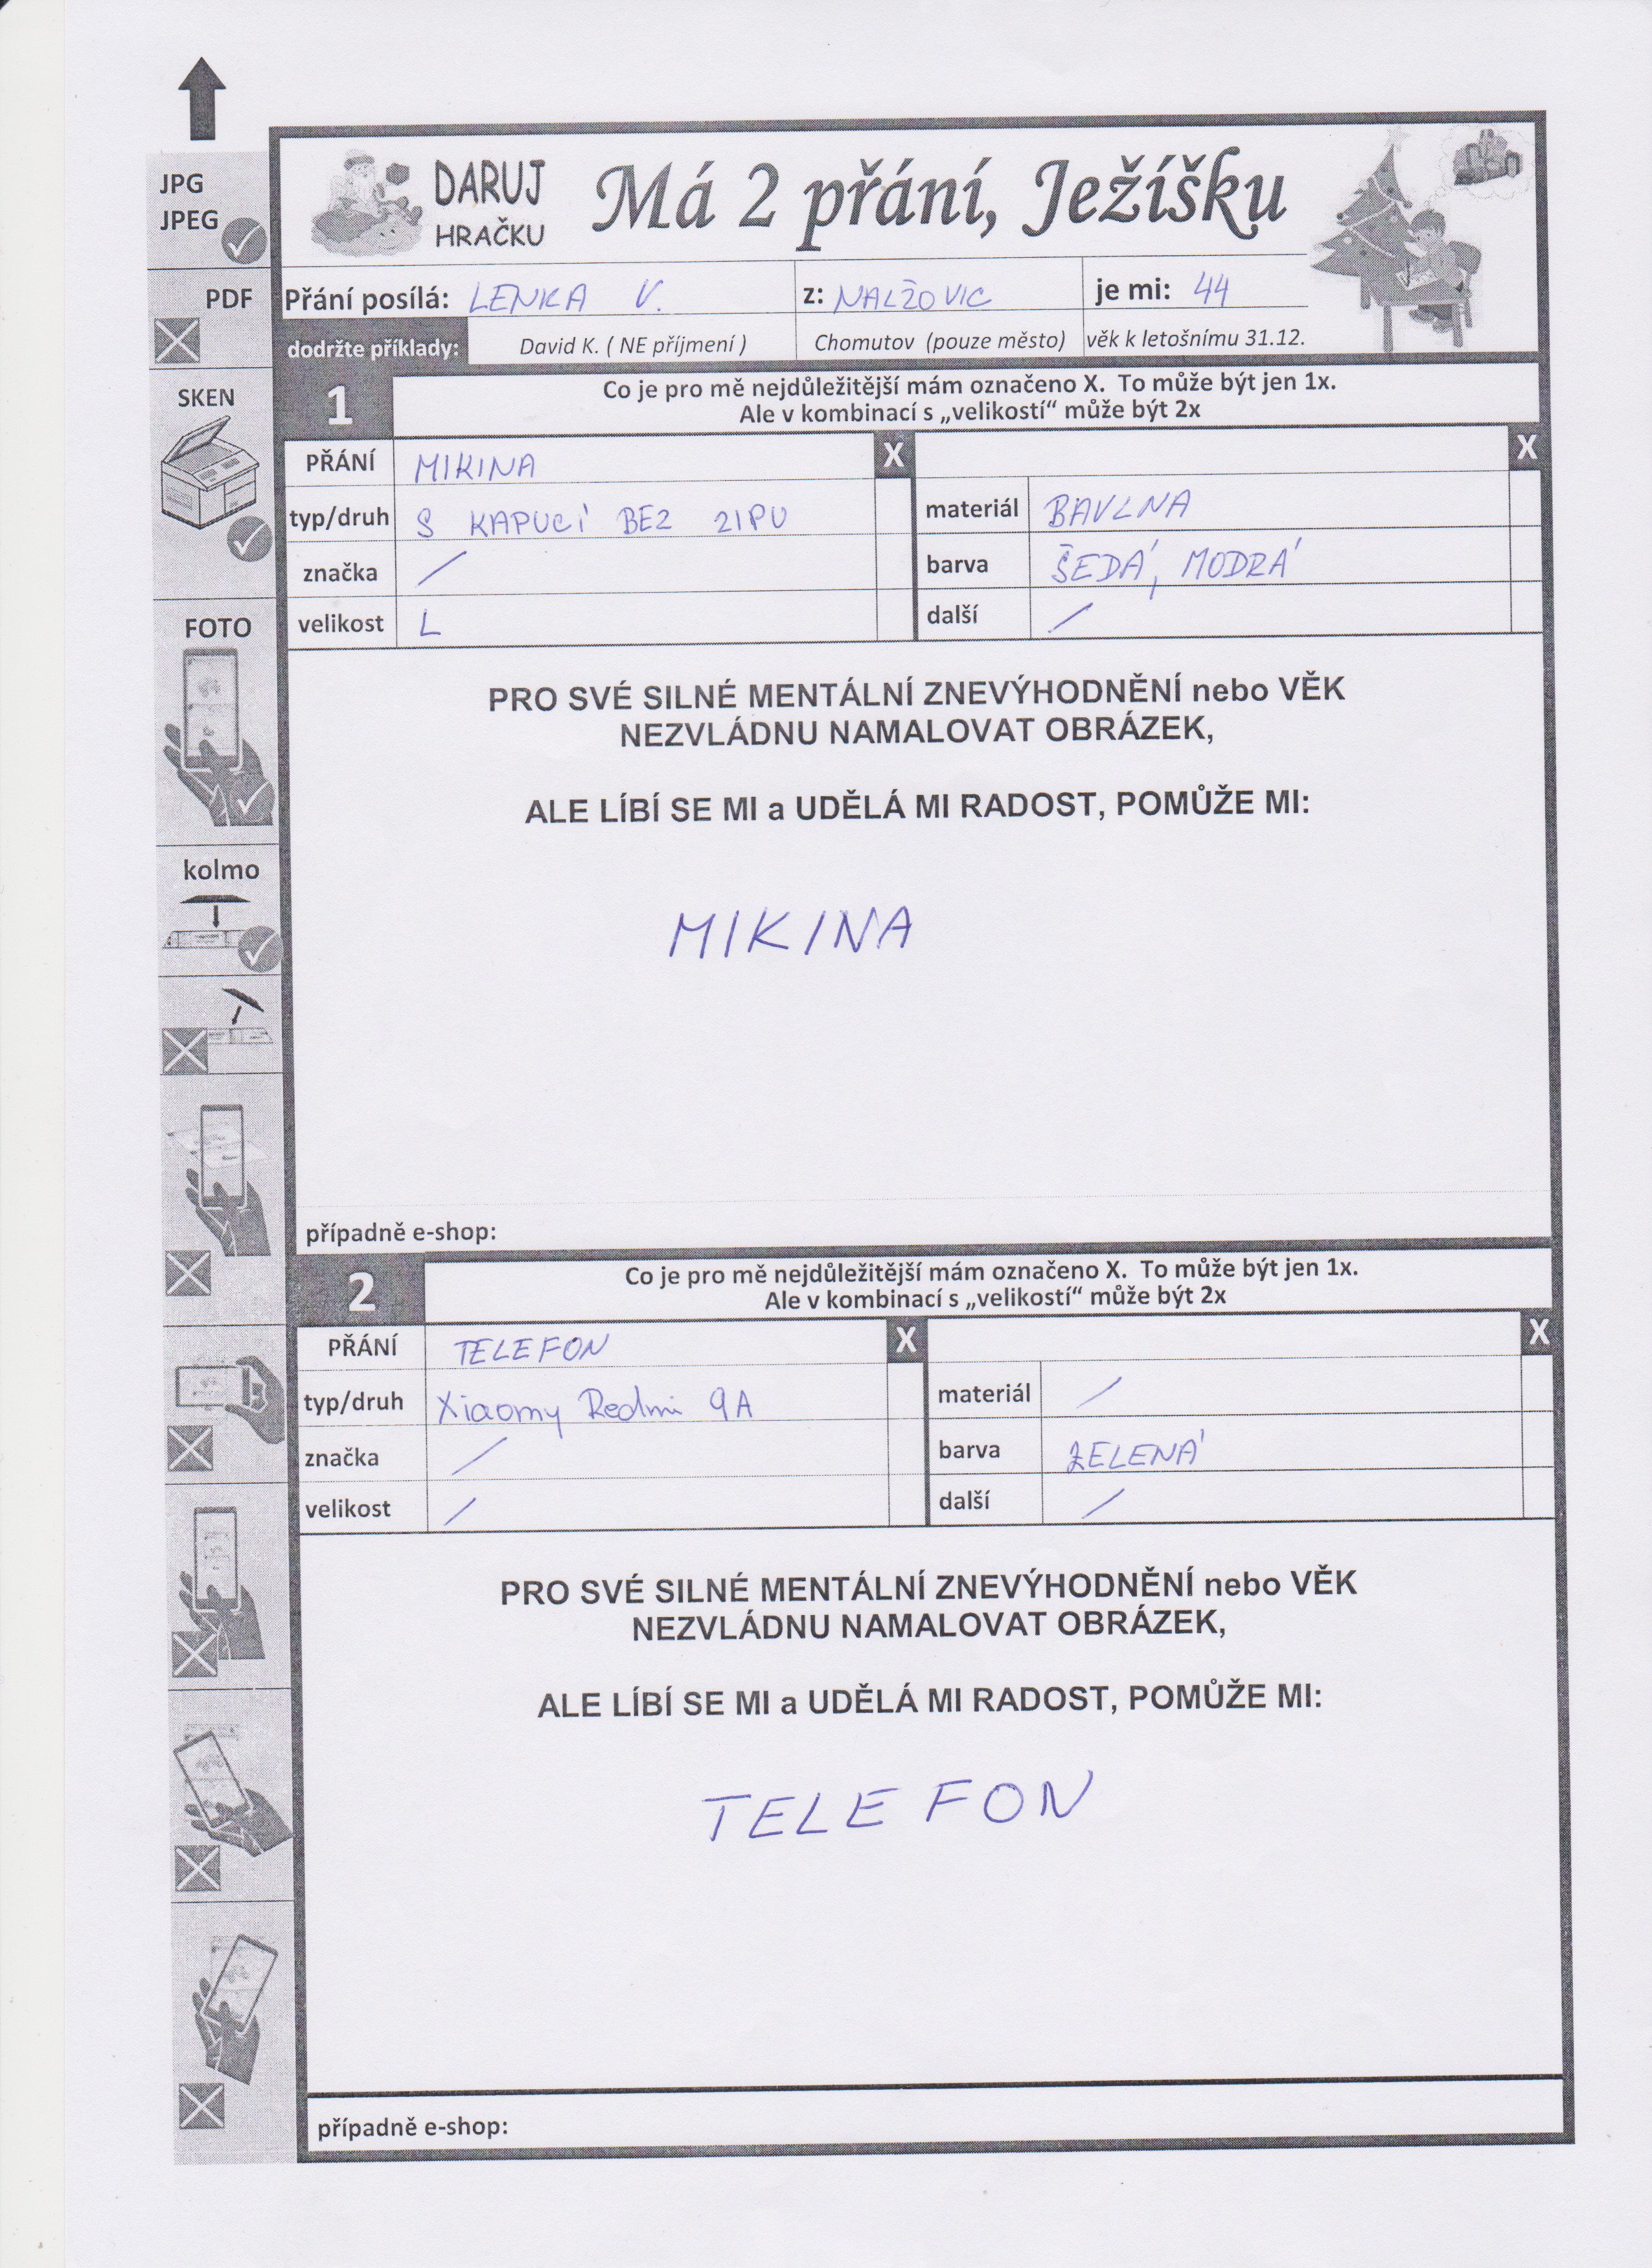 JPG
JPEG
PDF
SKEN
FOTO
kolmo
DARUJ
HRAČKU
Má 2 přání, Ježíšku
Přání posílá: LENKA V. z: NALŽOVIC je mi: 44
dodržte příklady: David K. ( NE příjmení ) Chomutov (pouze město) věk k letošnímu 31.12.
1 Co je pro mě nejdůležitější mám označeno X. To může být jen 1x.
Ale v kombinací s „velikostí“ může být 2x
PŘÁNÍ MIKINA X X
typ/druh S KAPUCÍ BEZ ZIPU materiál BAVLNA
značka / barva ŠEDÁ, MODRÁ
velikost L další /
PRO SVÉ SILNÉ MENTÁLNÍ ZNEVÝHODNĚNÍ nebo VĚK
NEZVLÁDNU NAMALOVAT OBRÁZEK,
ALE LÍBÍ SE MI a UDĚLÁ MI RADOST, POMŮŽE MI:
MIKINA
případně e-shop:
2 Co je pro mě nejdůležitější mám označeno X. To může být jen 1x.
Ale v kombinací s „velikostí“ může být 2x
PŘÁNÍ TELEFON X X
typ/druh Xiaomy Redmi 9A materiál /
značka / barva ZELENÁ
velikost / další /
PRO SVÉ SILNÉ MENTÁLNÍ ZNEVÝHODNĚNÍ nebo VĚK
NEZVLÁDNU NAMALOVAT OBRÁZEK,
ALE LÍBÍ SE MI a UDĚLÁ MI RADOST, POMŮŽE MI:
TELEFON
případně e-shop: